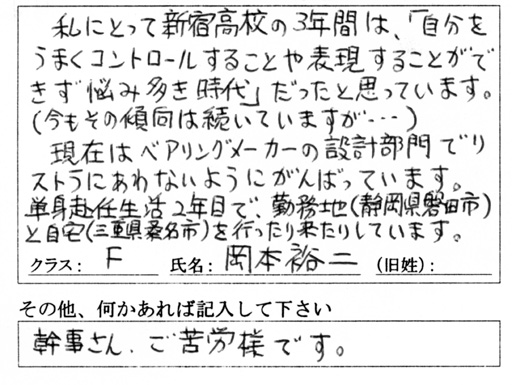 私にとって新宿高校の3年間は、「自分を
うまくコントロールすることや表現することがで
きず悩み多き時代」だったと思っています。
(今もその傾向は続いていますが…)
現在はベアリングメーカーの設計部門でリ
ストラにあわないようにがんばっています。
単身赴任生活2年目で、勤務地(静岡県磐田市)
と自宅(三重県桑名市)を行ったり来たりしています。
クラス: F 氏名: 岡本裕二 (旧姓):
その他、何かあれば記入して下さい
幹事さん、ご苦労様です。